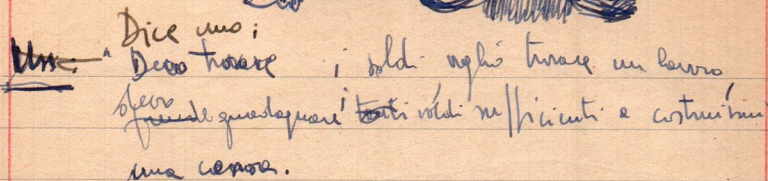 Dice uno:
Uno: " Devo trovare i soldi, voglio trovare un lavoro,
spero guadagnare i tanti soldi sufficienti a costruirmi
una casa.